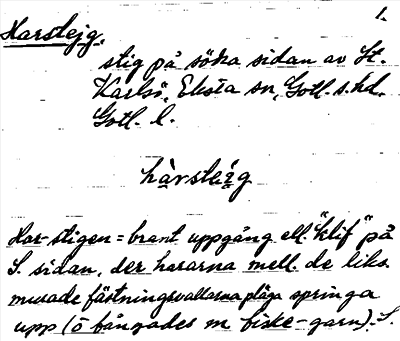 1.
Harstejg.
stig på södra sidan av St.
Karlsö, Eksta sn, Gotl. s. hd.
Gotl. l.
hàrstéig
Har-stigen = brant uppgång ell. "klif" på
S. sidan, der hararna mell. de liks.
murade fästningsvallarna pläga springa
upp (ö fångades m. fiske-garn). S.